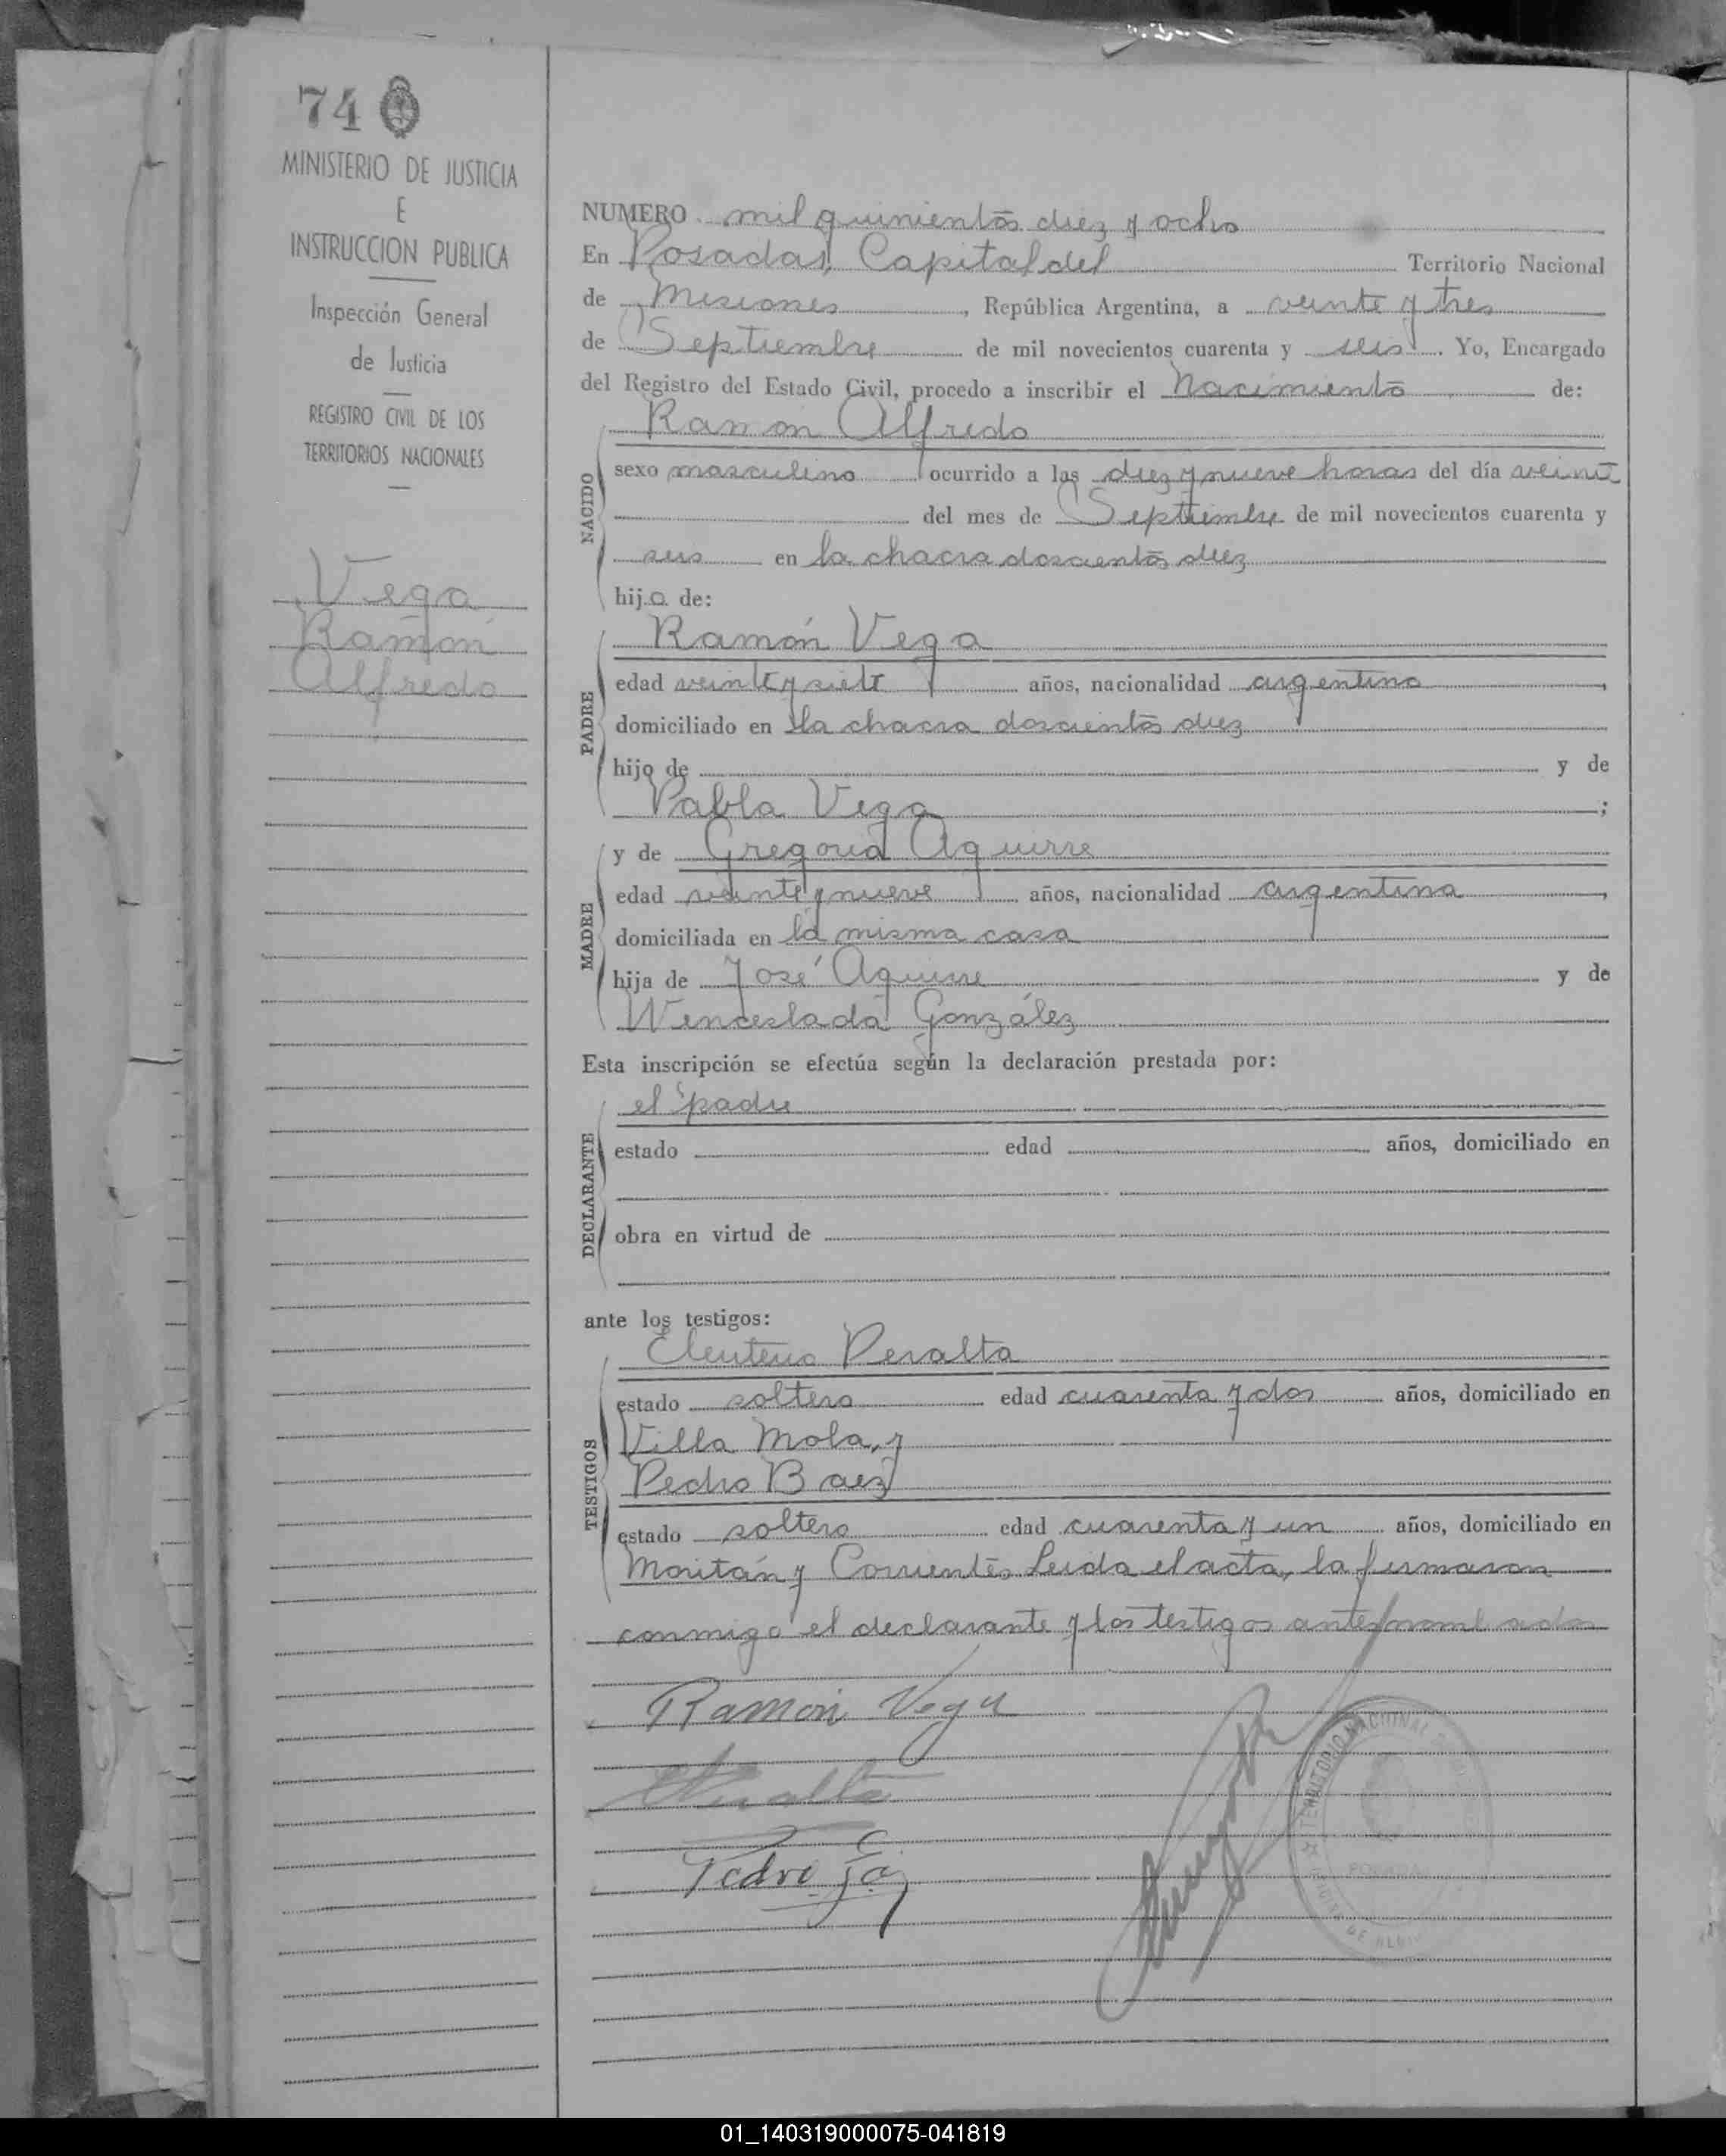 74
MINISTERIO DE JUSTICIA
E
INSTRUCCION PUBLICA
Inspección General
de Justicia
REGISTRO CIVIL DE LOS
TERRITORIOS NACIONALES
Vega
Ramón
Alfredo
NUMERO mil quinientos diez y ocho
En Posadas, Capital del Territorio Nacional
de Misiones, República Argentina, a veinte y tres
de Septiembre de mil novecientos cuarenta y seis. Yo, Encargado
del Registro del Estado Civil, procedo a inscribir el Nacimiento de:
Ramón Alfredo
NACIDO
sexo masculino ocurrido a las diez y nueve horas del día veinte
del mes de Septiembre de mil novecientos cuarenta y
seis en la chacra doscientos diez
hijo de:
Ramón Vega
PADRE
edad veinte y siete años, nacionalidad argentino,
domiciliado en la chacra doscientos diez
hijo de y de
Pabla Vega;
y de Gregoria Aguirre
MADRE
edad veinte y nueve años, nacionalidad argentina,
domiciliada en la misma casa
hija de José Aguirre y de
Wenceslada González
Esta inscripción se efectúa según la declaración prestada por:
el padre
DECLARANTE
estado edad años, domiciliado en
obra en virtud de
ante los testigos:
Eleuterio Peralta
TESTIGOS
estado soltero edad cuarenta y dos años, domiciliado en
Villa Mola, y
Pedro Baez
estado soltero edad cuarenta y un años, domiciliado en
Moritán y Corrientes. Leida el acta, la firmaron
conmigo el declarante y los testigos antes nombrados
Ramon Vega
Pedro
TERRITORIO NACIONAL
POSADAS
01_140319000075-041819